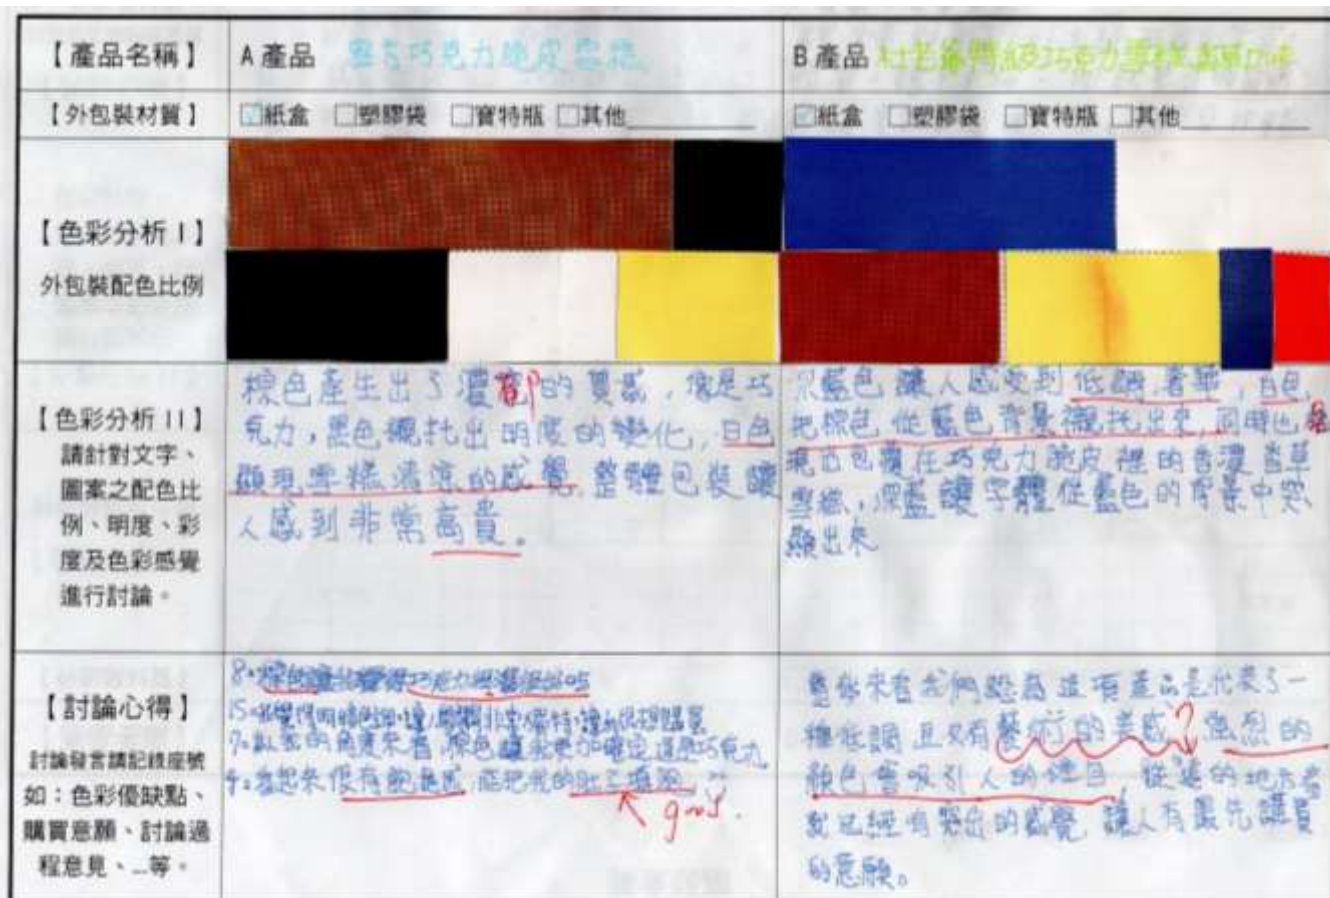 【產品名稱】
A產品 巧克力脆皮雪糕
B產品 杜老爺 級巧克力雪糕
【外包裝材質】
☑紙盒 □塑膠袋 □寶特瓶 □其他
☑紙盒 □塑膠袋 □寶特瓶 □其他
【色彩分析 I】
外包裝配色比例
【色彩分析 II】
請針對文字、
圖案之配色比
例、明度、彩
度及色彩感覺
進行討論。
棕色產生出了濃郁的質感,像是巧
克力,黑色襯托出明度的變化,白色
顯現雪糕清涼的感覺,整體包裝讓
人感到非常高貴。
深藍色讓人感受到低調奢華,白色
把棕色從藍色背景襯托出來,同時也
現出包覆在巧克力脆皮裡的香濃香草
雪糕,深藍讓字體從藍色的背景中突
顯出來
【討論心得】
討論發言請記錄座號
如:色彩優缺點、
購買意願、討論過
程意見、...等。
8:棕色 覺得巧克力
15:
7:以我的角度來看,棕色讓我更加確定這是巧克力
4:看起來很有飽足感,能把我的肚子填飽
good.
整體來看我們認為這項產品是代表了一
種低調且又有藝術的美感?強烈的
顏色會吸引人的注目,從遠的地方看
就已經有突出的感覺 讓人有最先購買
的意願。